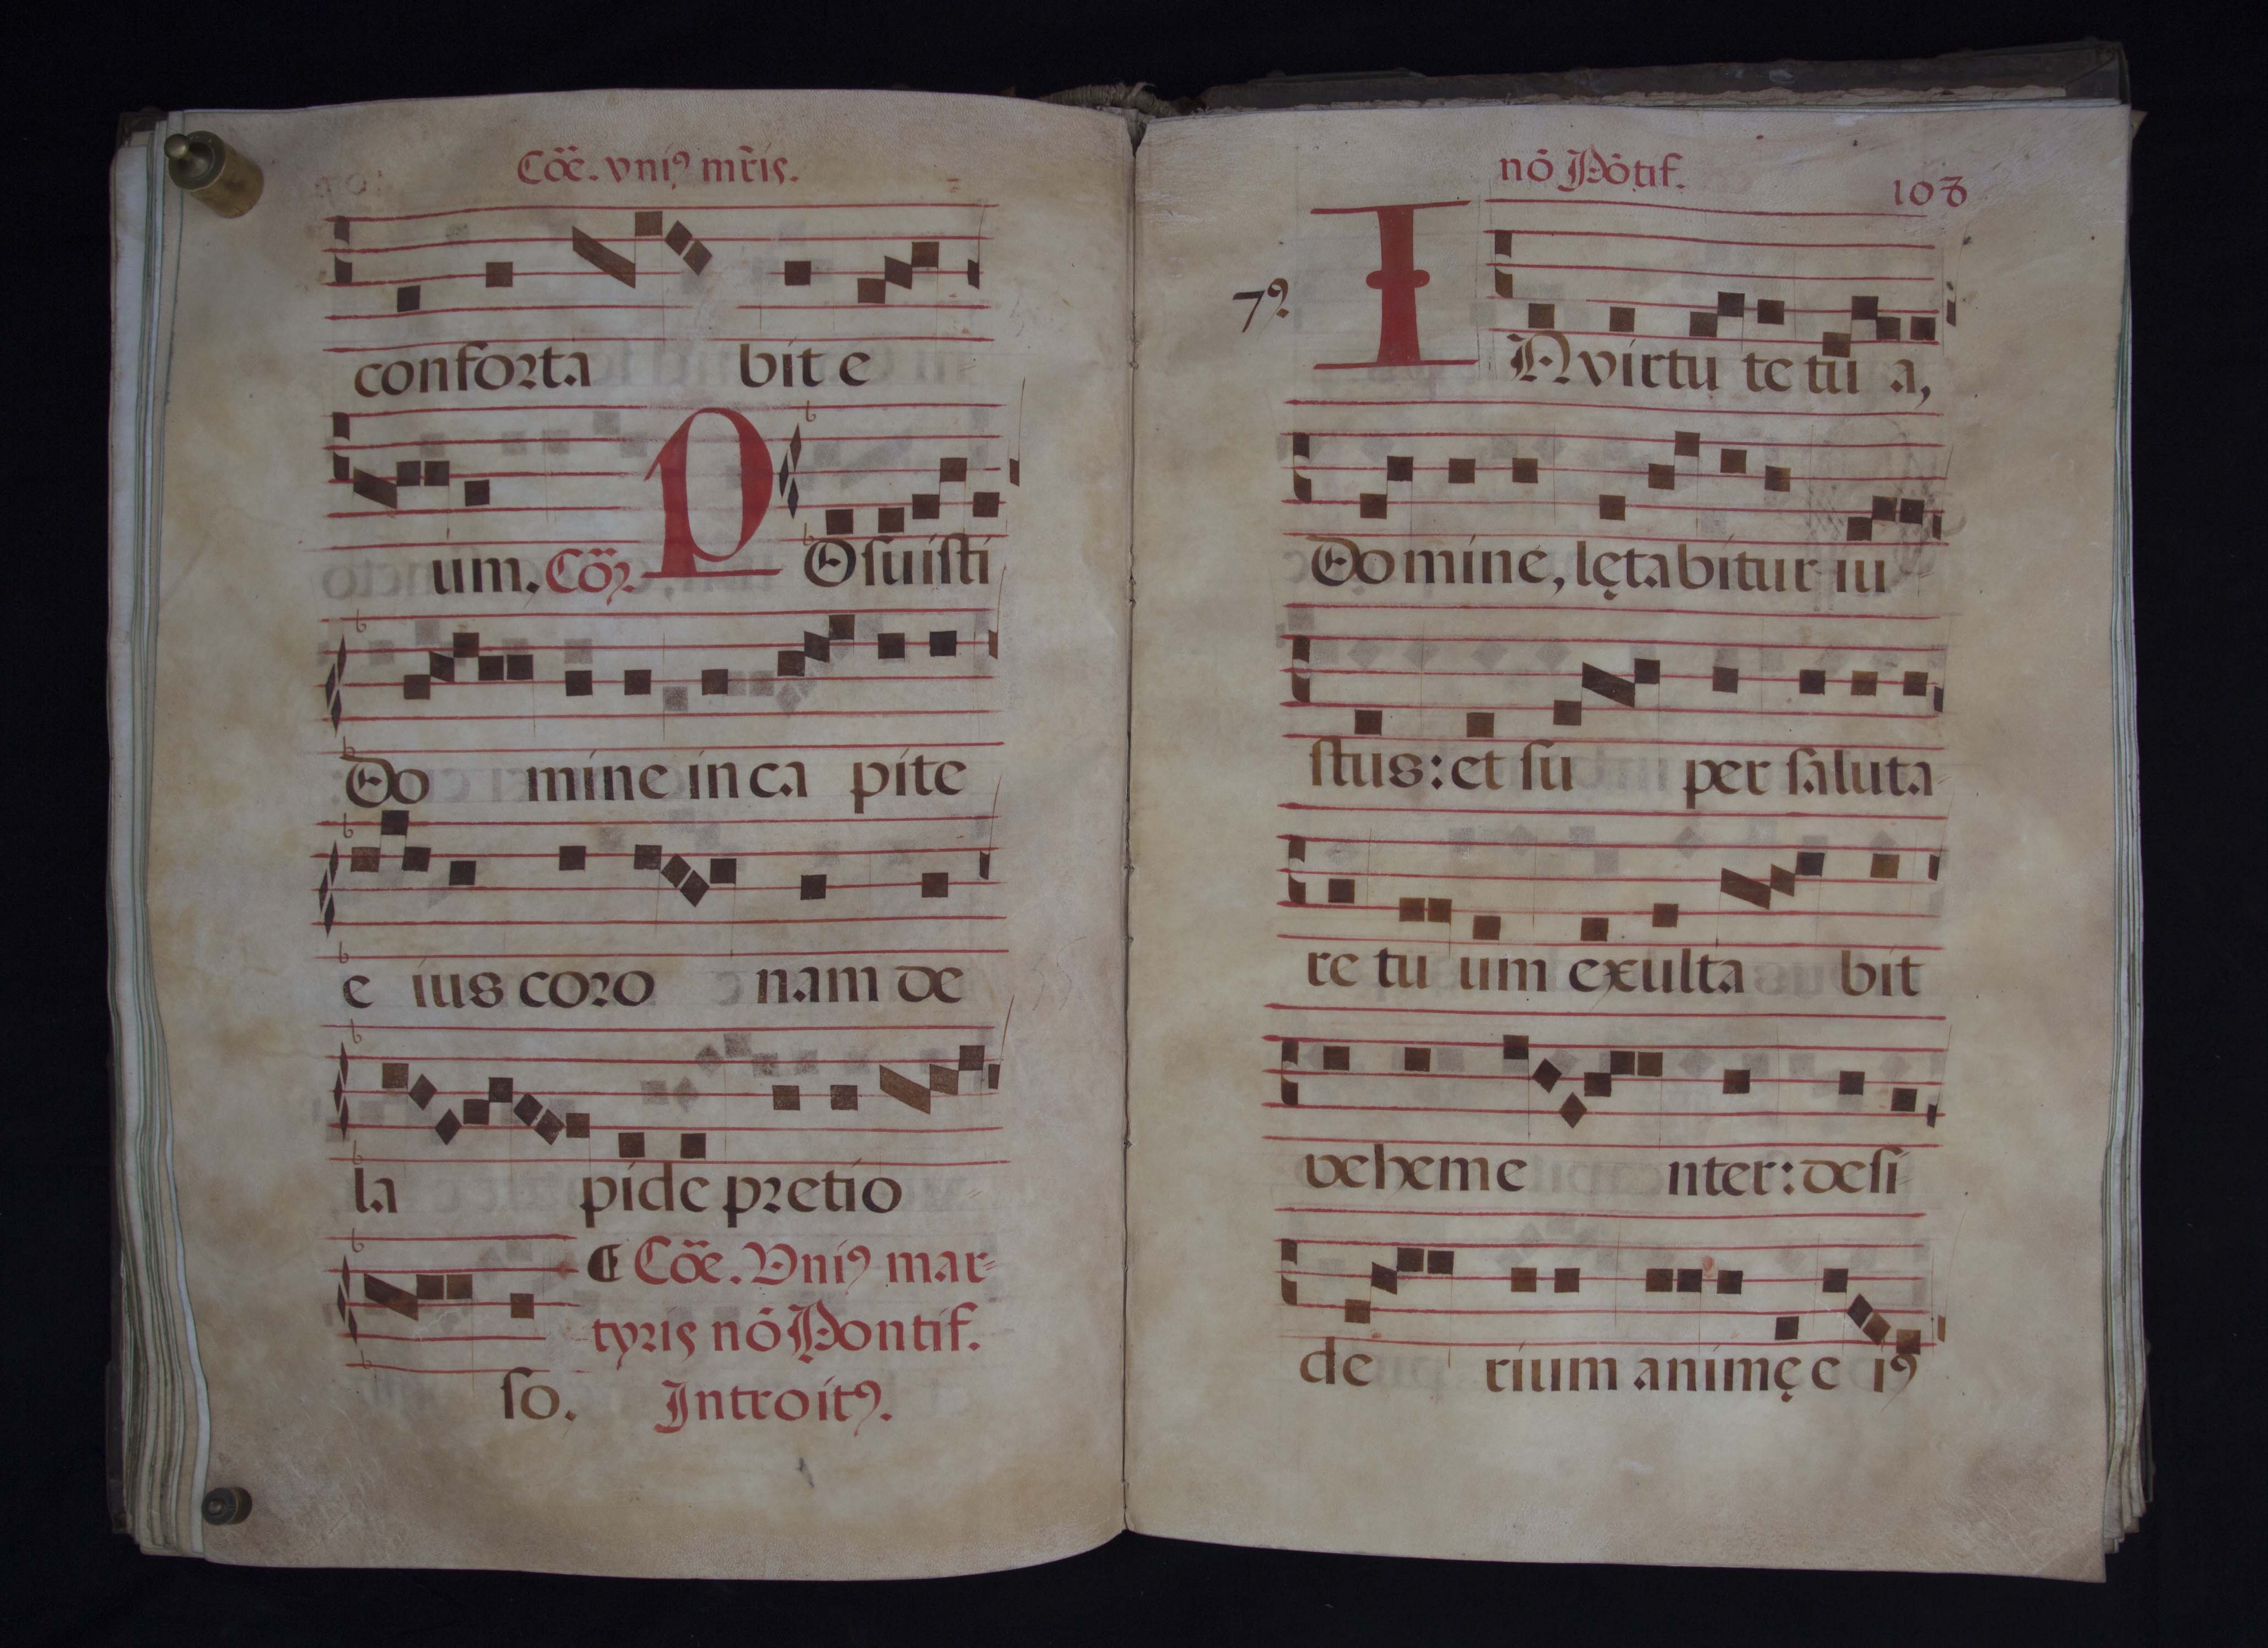 Cõe. vniꝰ mr̃is.
conforta bit e
um. Cõꝫ. POsuisti
Do mine in ca pite
e ius coro nam de
la pide pretio
¶ Cõe. Vniꝰ mar-
tyris nõ Pontif.
so. Introitꝰ.
nõ Põtif. 108
7ꝰ. IN virtu te tu a,
Domine, lętabitur iu
stus: et su per saluta-
re tu um exulta bit
veheme nter: desi-
de rium animę e iꝰ